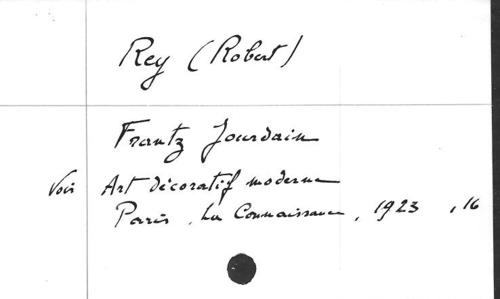 Rey (Robert)
Frantz Jourdain
Voir Art décoratif moderne
Paris, La Connaissance, 1923, 16